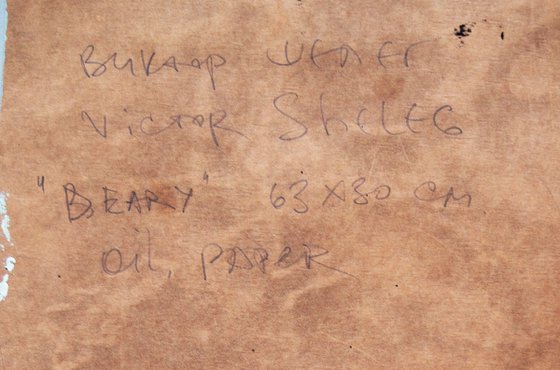 Виктор Шелег
Victor Sheleg
"BEARY" 63X30 CM
oil, PAPER